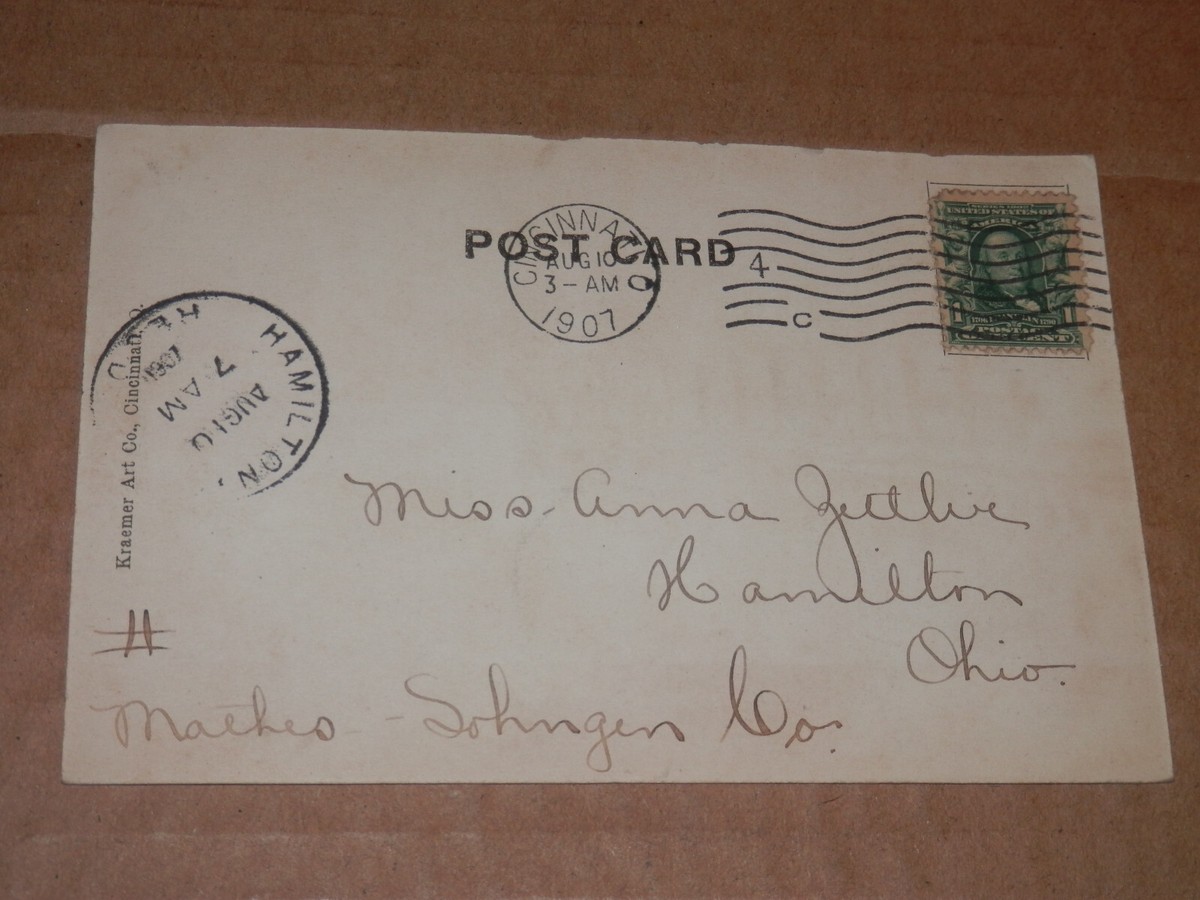 POST CARD
CINCINNATI, O.
AUG 10
3-AM
1907
4
C
SERIES 1902
UNITED STATES OF
AMERICA
1 FRANKLIN 1
1706 1790
POSTAGE
ONE CENT
HAMILTON,
AUG 10
7 AM
1907
OHIO
Kraemer Art Co., Cincinnati, O.
Miss Anna Zettlie
Hamilton
Ohio.
#
Mathes - Sohngen Co.